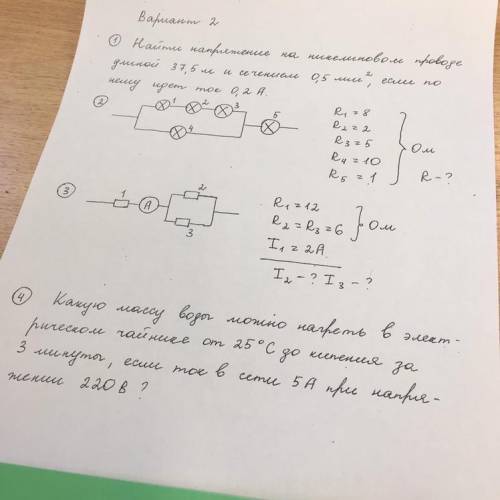 Вариант 2
① Найти напряжение на никелиновом проводе
длиной 37,5 м и сечением 0,5 мм², если по
нему идет ток 0,2 А.
② 1 2 3 4 5
R₁ = 8
R₂ = 2
R₃ = 5
R₄ = 10
R₅ = 1
Ом
R - ?
③ 1 А 2 3
R₁ = 12
R₂ = R₃ = 6
Ом
I₁ = 2А
I₂ - ? I₃ - ?
④ Какую массу воды можно нагреть в элект-
рическом чайнике от 25°С до кипения за
3 минуты, если ток в сети 5А при напря-
жении 220В?